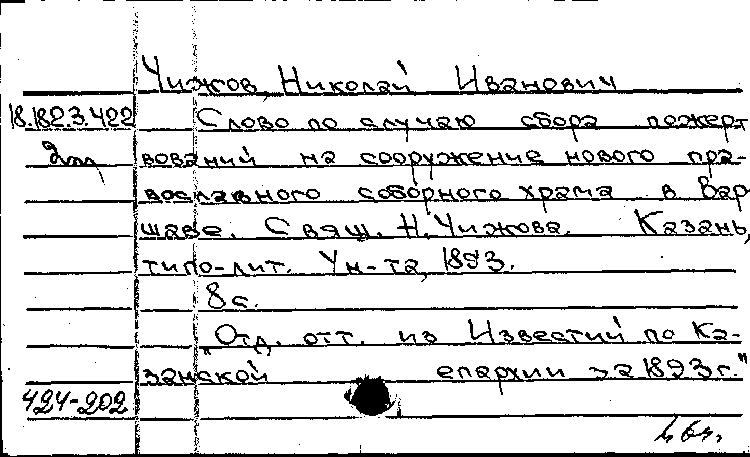 Чижов, Николай Иванович
18.182.3.422 Слово по случаю сбора пожерт
вований на сооружение нового пра-
вославного соборного храма в Вар
шаве. Свящ. Н. Чижова. Казань,
типо-лит. Ун-та, 1893.
8 с.
"Отд. отт. из Известий по Ка-
занской епархии за 1893 г."
424-202